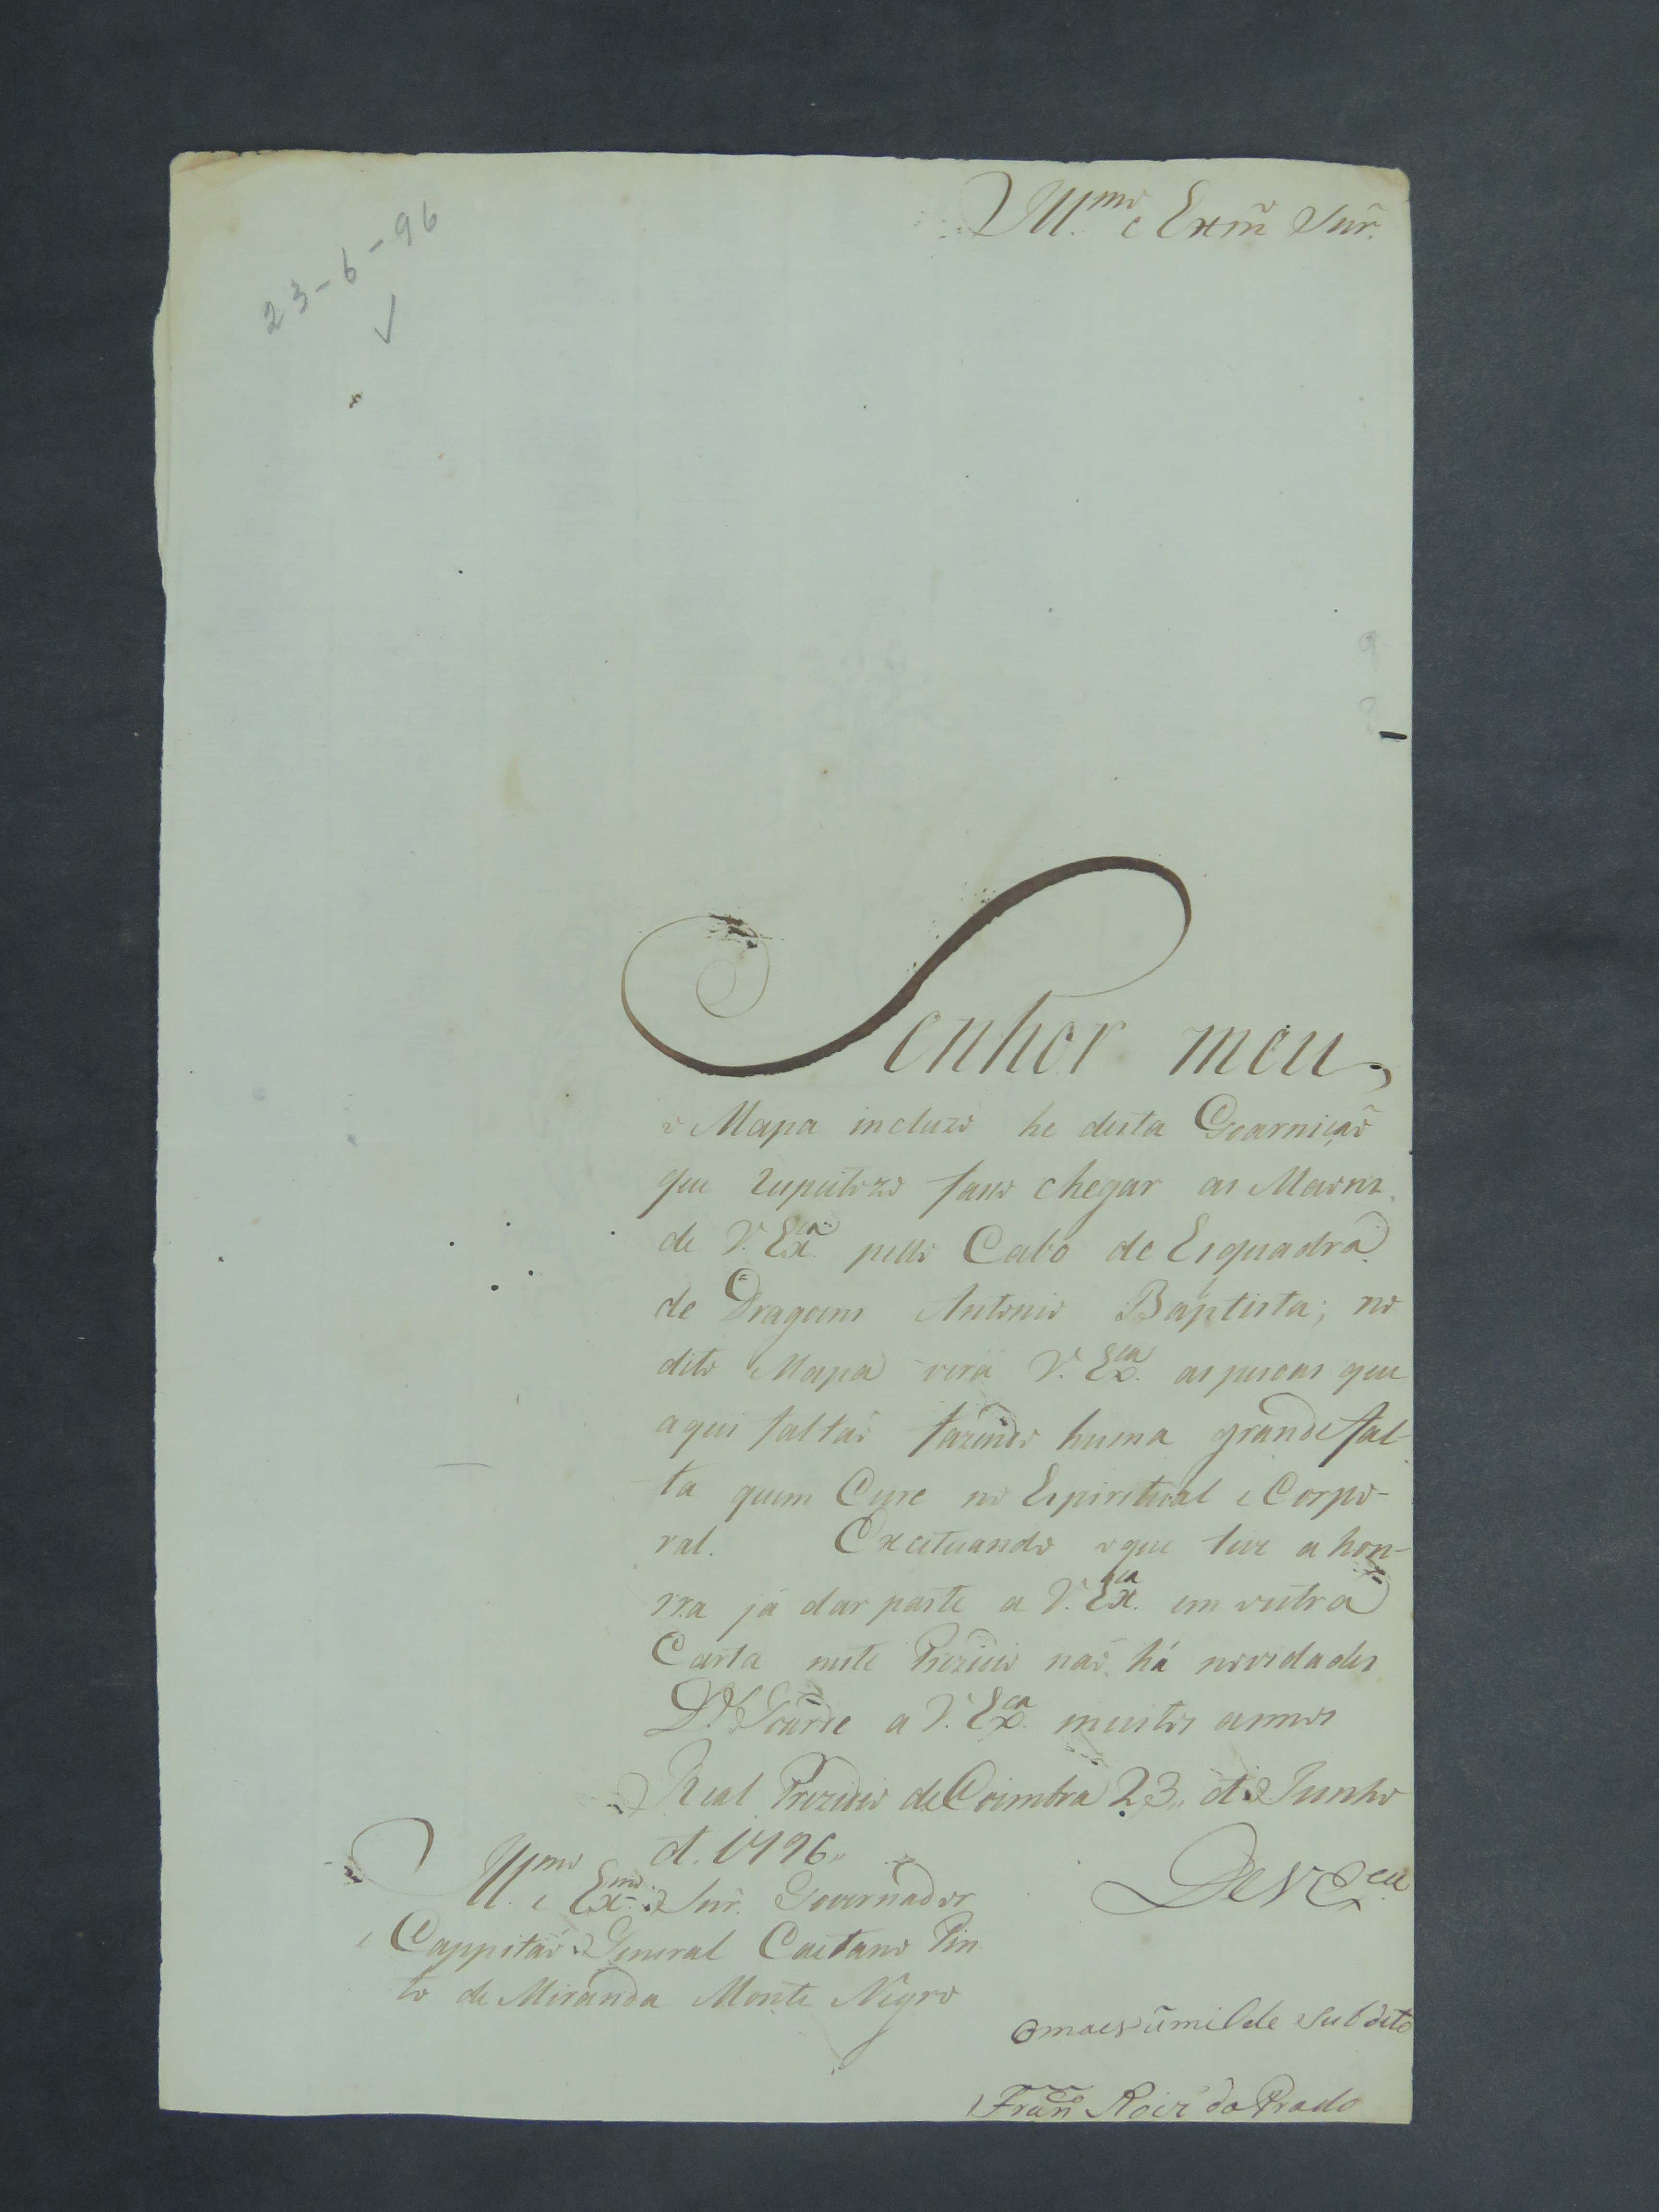 Ill.mo e Exm.o Snr.
23-6-96
Senhor meu,
o Mapa incluzo he desta Goarnição
que respeitozo faso chegar as Maons
de V. Ex.ca pello Cabo de Esquadra
de Dragoens Antonio Baptista; no
dito Mapa verá V. Ex.ca as pesoas que
aqui faltaõ fazendo huma grande fal-
ta quem Cure no Espiritual e Corpo-
ral. Excetuando o que tive a hon-
rra já dar parte a V. Ex.ca em outra
Carta neste Prezidio naõ há novidades
D.s Goarde a V. Ex.ca muitos annos
Real Prezidio de Coimbra 23,, de Junho
d. 1796,,
De V Ex.ca
Ill.mo e Ex.mo Snr. Governador
e Cappitaõ General Caetano Pin
to de Miranda Monte Negro
o maes umilde subdito
Fran.co Roiz do Prado